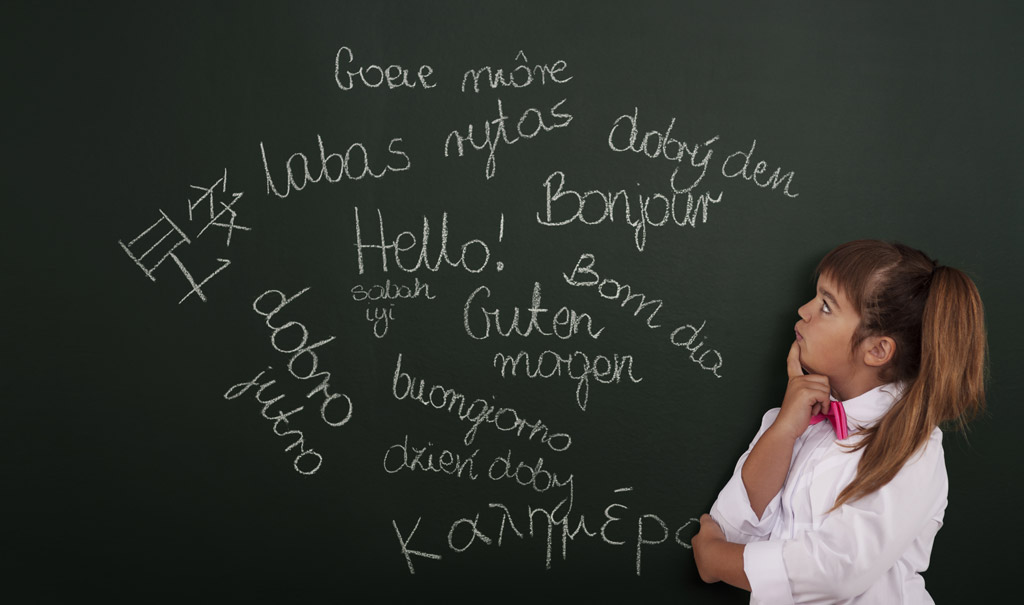 Goeie môre
labas rytas
dobrý den
Bonjour
Hello!
sabah
iyi
Bom dia
Guten
morgen
dobro
jutro
buongiorno
dzień doby
Καλημέρα